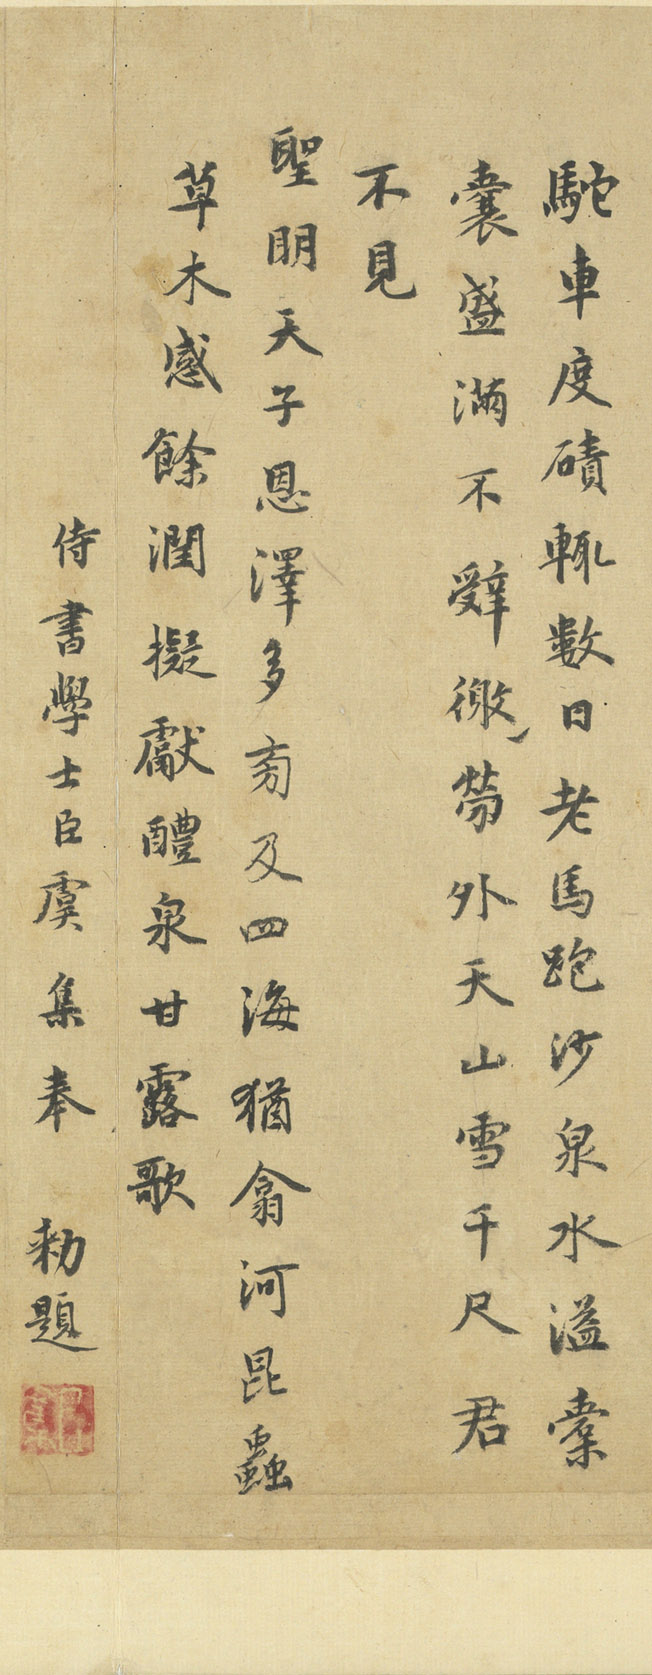 駞車度磧輒數日老馬跑沙泉水溢橐
囊盛滿不辭微勞外天山雪千尺君
不見
聖朙天子恩澤多旁及四海猶翕河昆蟲
草木感餘潤擬獻醴泉甘露歌
侍書學士臣虞集奉 勑題